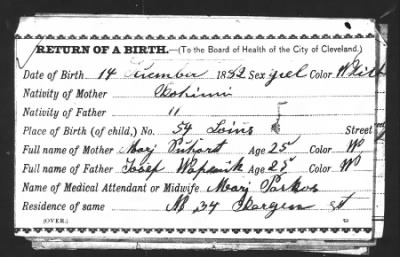 RETURN OF A BIRTH.—(To the Board of Health of the City of Cleveland.)
Date of Birth 14 1882 Sex girl Color Whit
Nativity of Mother Bohimi
Nativity of Father "
Place of Birth (of child,) No. 54 Street
Full name of Mother Mary Age 25 Color W
Full name of Father Josef Age 28 Color W
Name of Medical Attendant or Midwife Mary
Residence of same No 34 st
(OVER.)